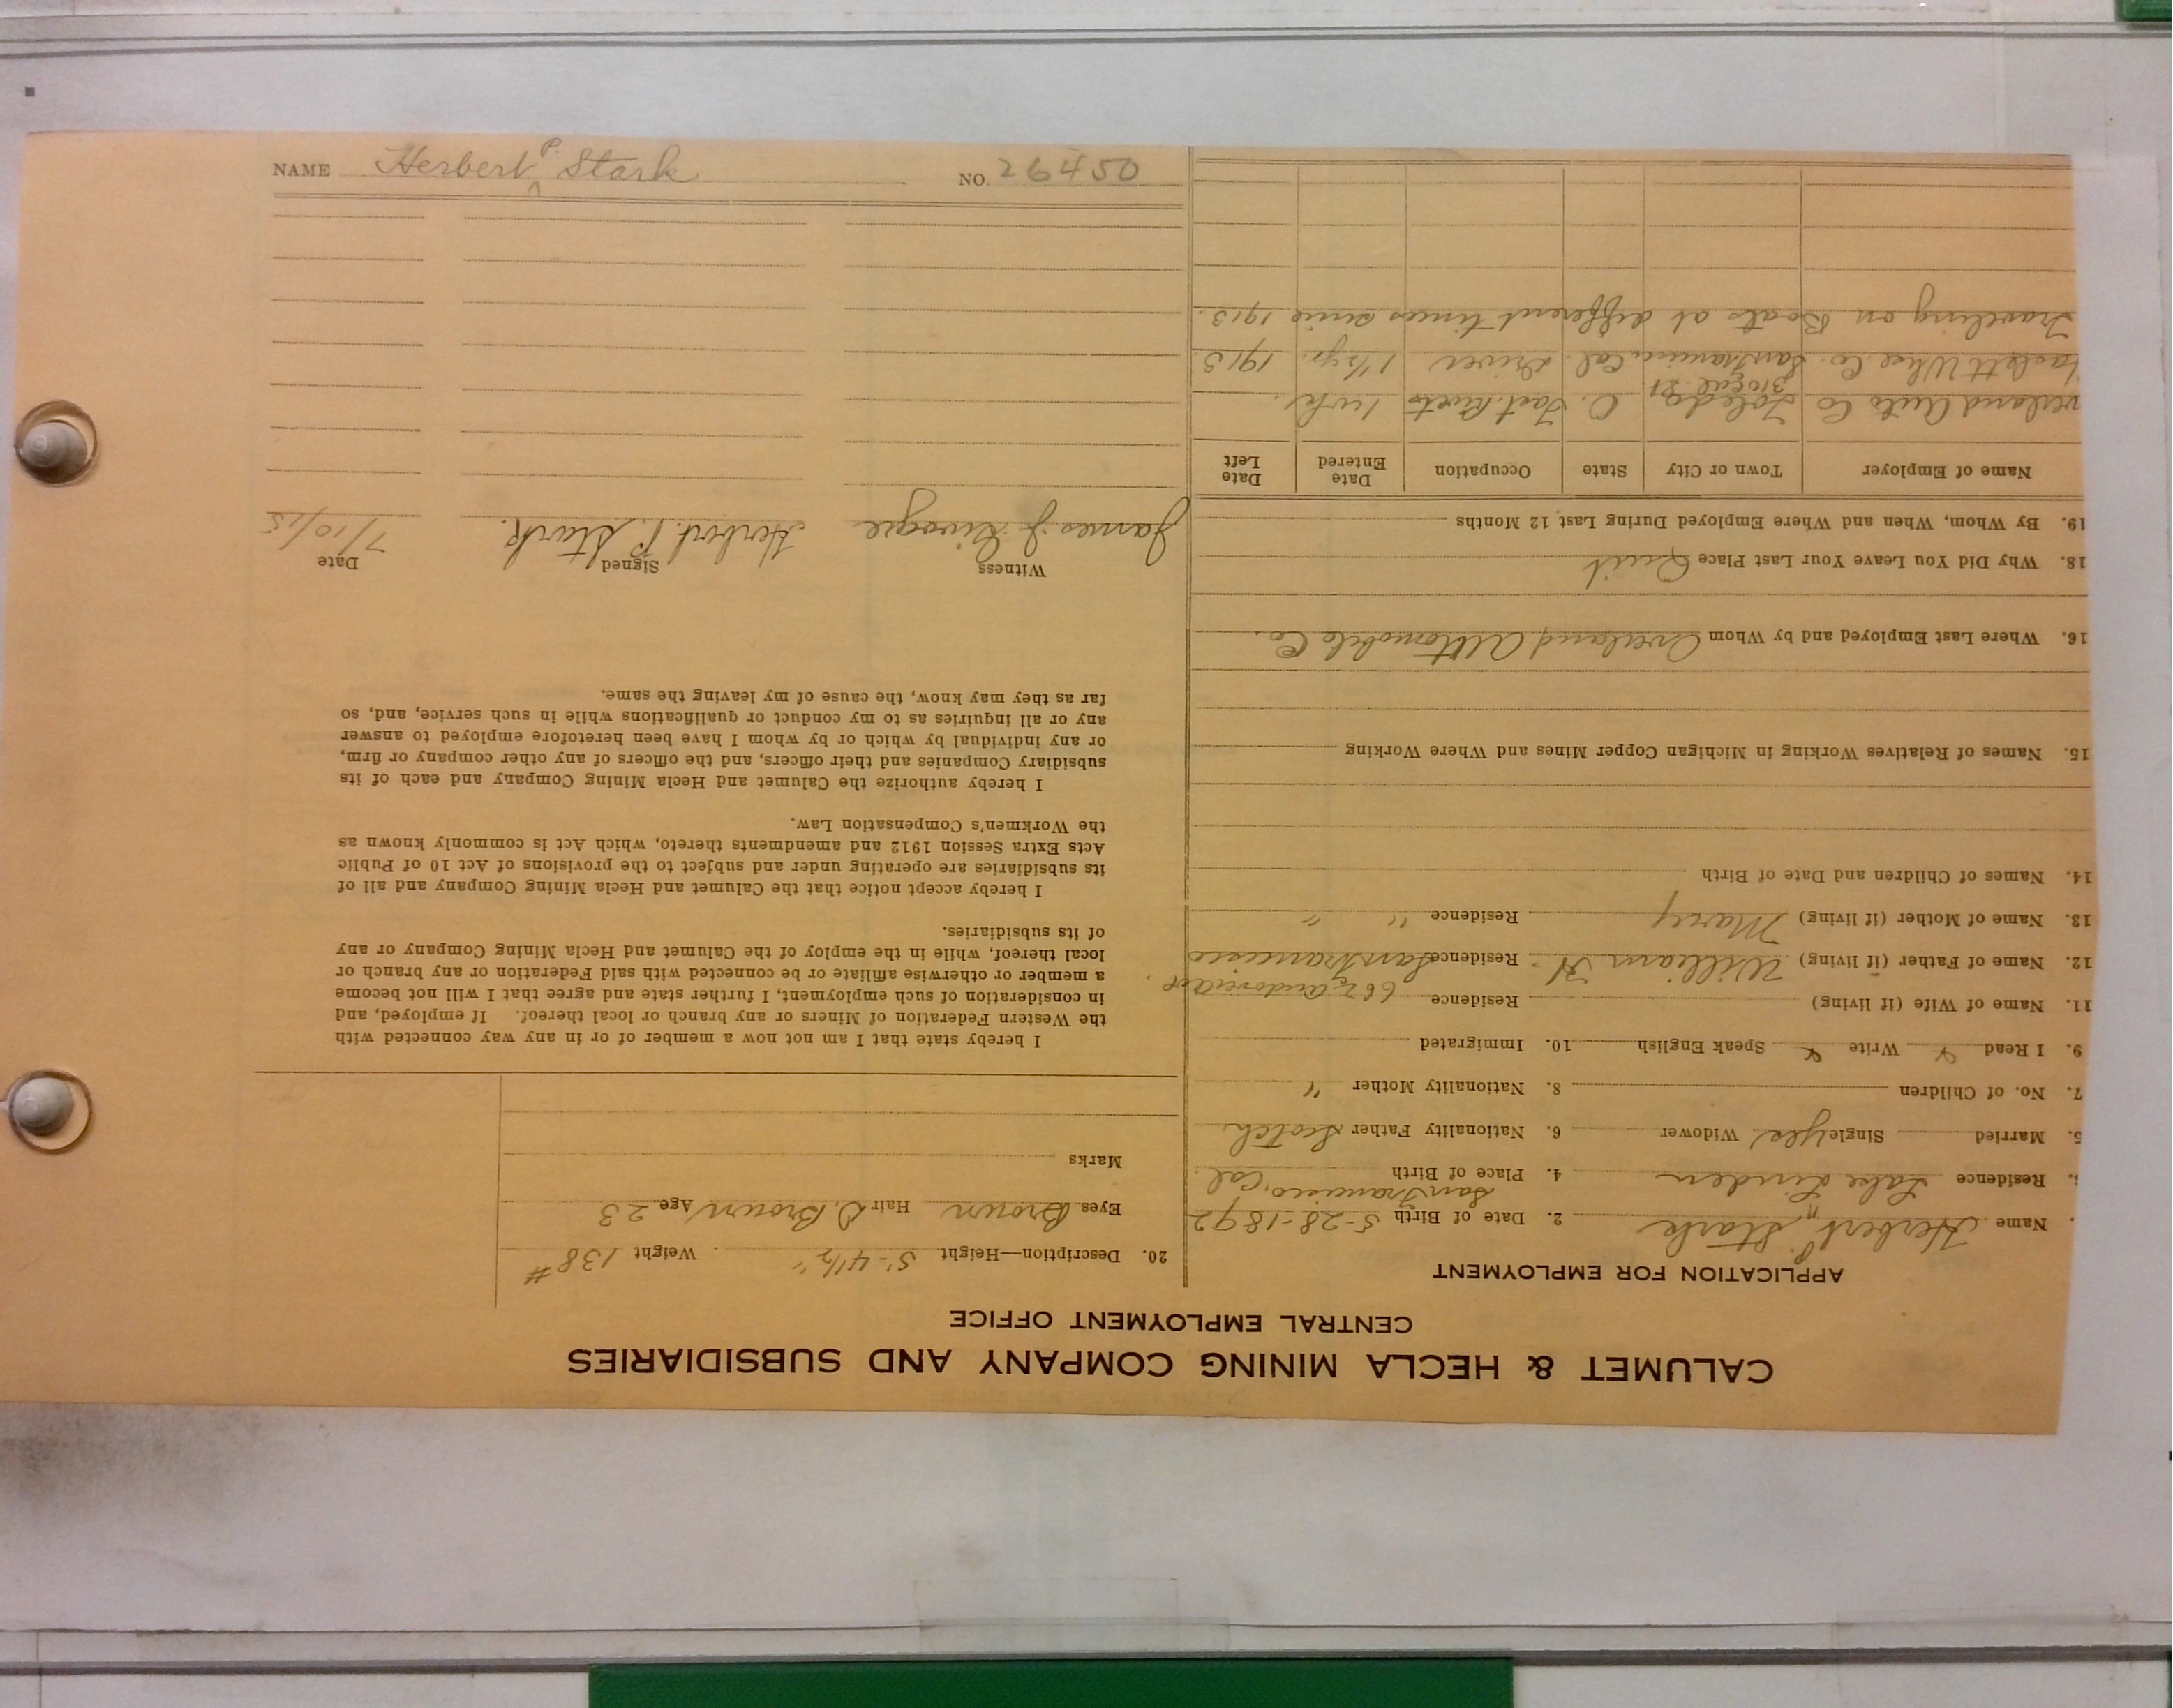 NAME Herbert P. Stark NO. 26450
CALUMET & HECLA MINING COMPANY AND SUBSIDIARIES
CENTRAL EMPLOYMENT OFFICE
APPLICATION FOR EMPLOYMENT
. Name Herbert P. Stark 2. Date of Birth 5-28-1892
Residence Lake Linden 4. Place of Birth San Francisco, Cal.
5. Married Single Yes Widower 6. Nationality Father Scotch
7. No. of Children 8. Nationality Mother "
9. I Read Write Speak English 10. Immigrated
11. Name of Wife (if living) Residence 662
12. Name of Father (if living) William H. Residence San Francisco
13. Name of Mother (if living) Mary Residence " "
14. Names of Children and Date of Birth
15. Names of Relatives Working in Michigan Copper Mines and Where Working
16. Where Last Employed and by Whom Overland Automobile Co.
18. Why Did You Leave Your Last Place Quit
19. By Whom, When and Where Employed During Last 12 Months
Name of Employer Town or City State Occupation Date Entered Date Left
verland Auto Co Toledo O. 1 wk
310 Cal St
Whse Co. San Francisco Cal. Driver 1 1/2 yr. 1913
Traveling on Boats at different times since 1913.
20. Description—Height 5'-4 1/2" Weight 138 #
Eyes Brown Hair D. Brown Age 23
Marks
I hereby state that I am not now a member of or in any way connected with
the Western Federation of Miners or any branch or local thereof. If employed, and
in consideration of such employment, I further state and agree that I will not become
a member or otherwise affiliate or be connected with said Federation or any branch or
local thereof, while in the employ of the Calumet and Hecla Mining Company or any
of its subsidiaries.
I hereby accept notice that the Calumet and Hecla Mining Company and all of
its subsidiaries are operating under and subject to the provisions of Act 10 of Public
Acts Extra Session 1912 and amendments thereto, which Act is commonly known as
the Workmen's Compensation Law.
I hereby authorize the Calumet and Hecla Mining Company and each of its
subsidiary Companies and their officers, and the officers of any other company or firm,
or any individual by which or by whom I have been heretofore employed to answer
any or all inquiries as to my conduct or qualifications while in such service, and, so
far as they may know, the cause of my leaving the same.
Witness Signed Date
James J. Herbert P. Stark. 7/10/15